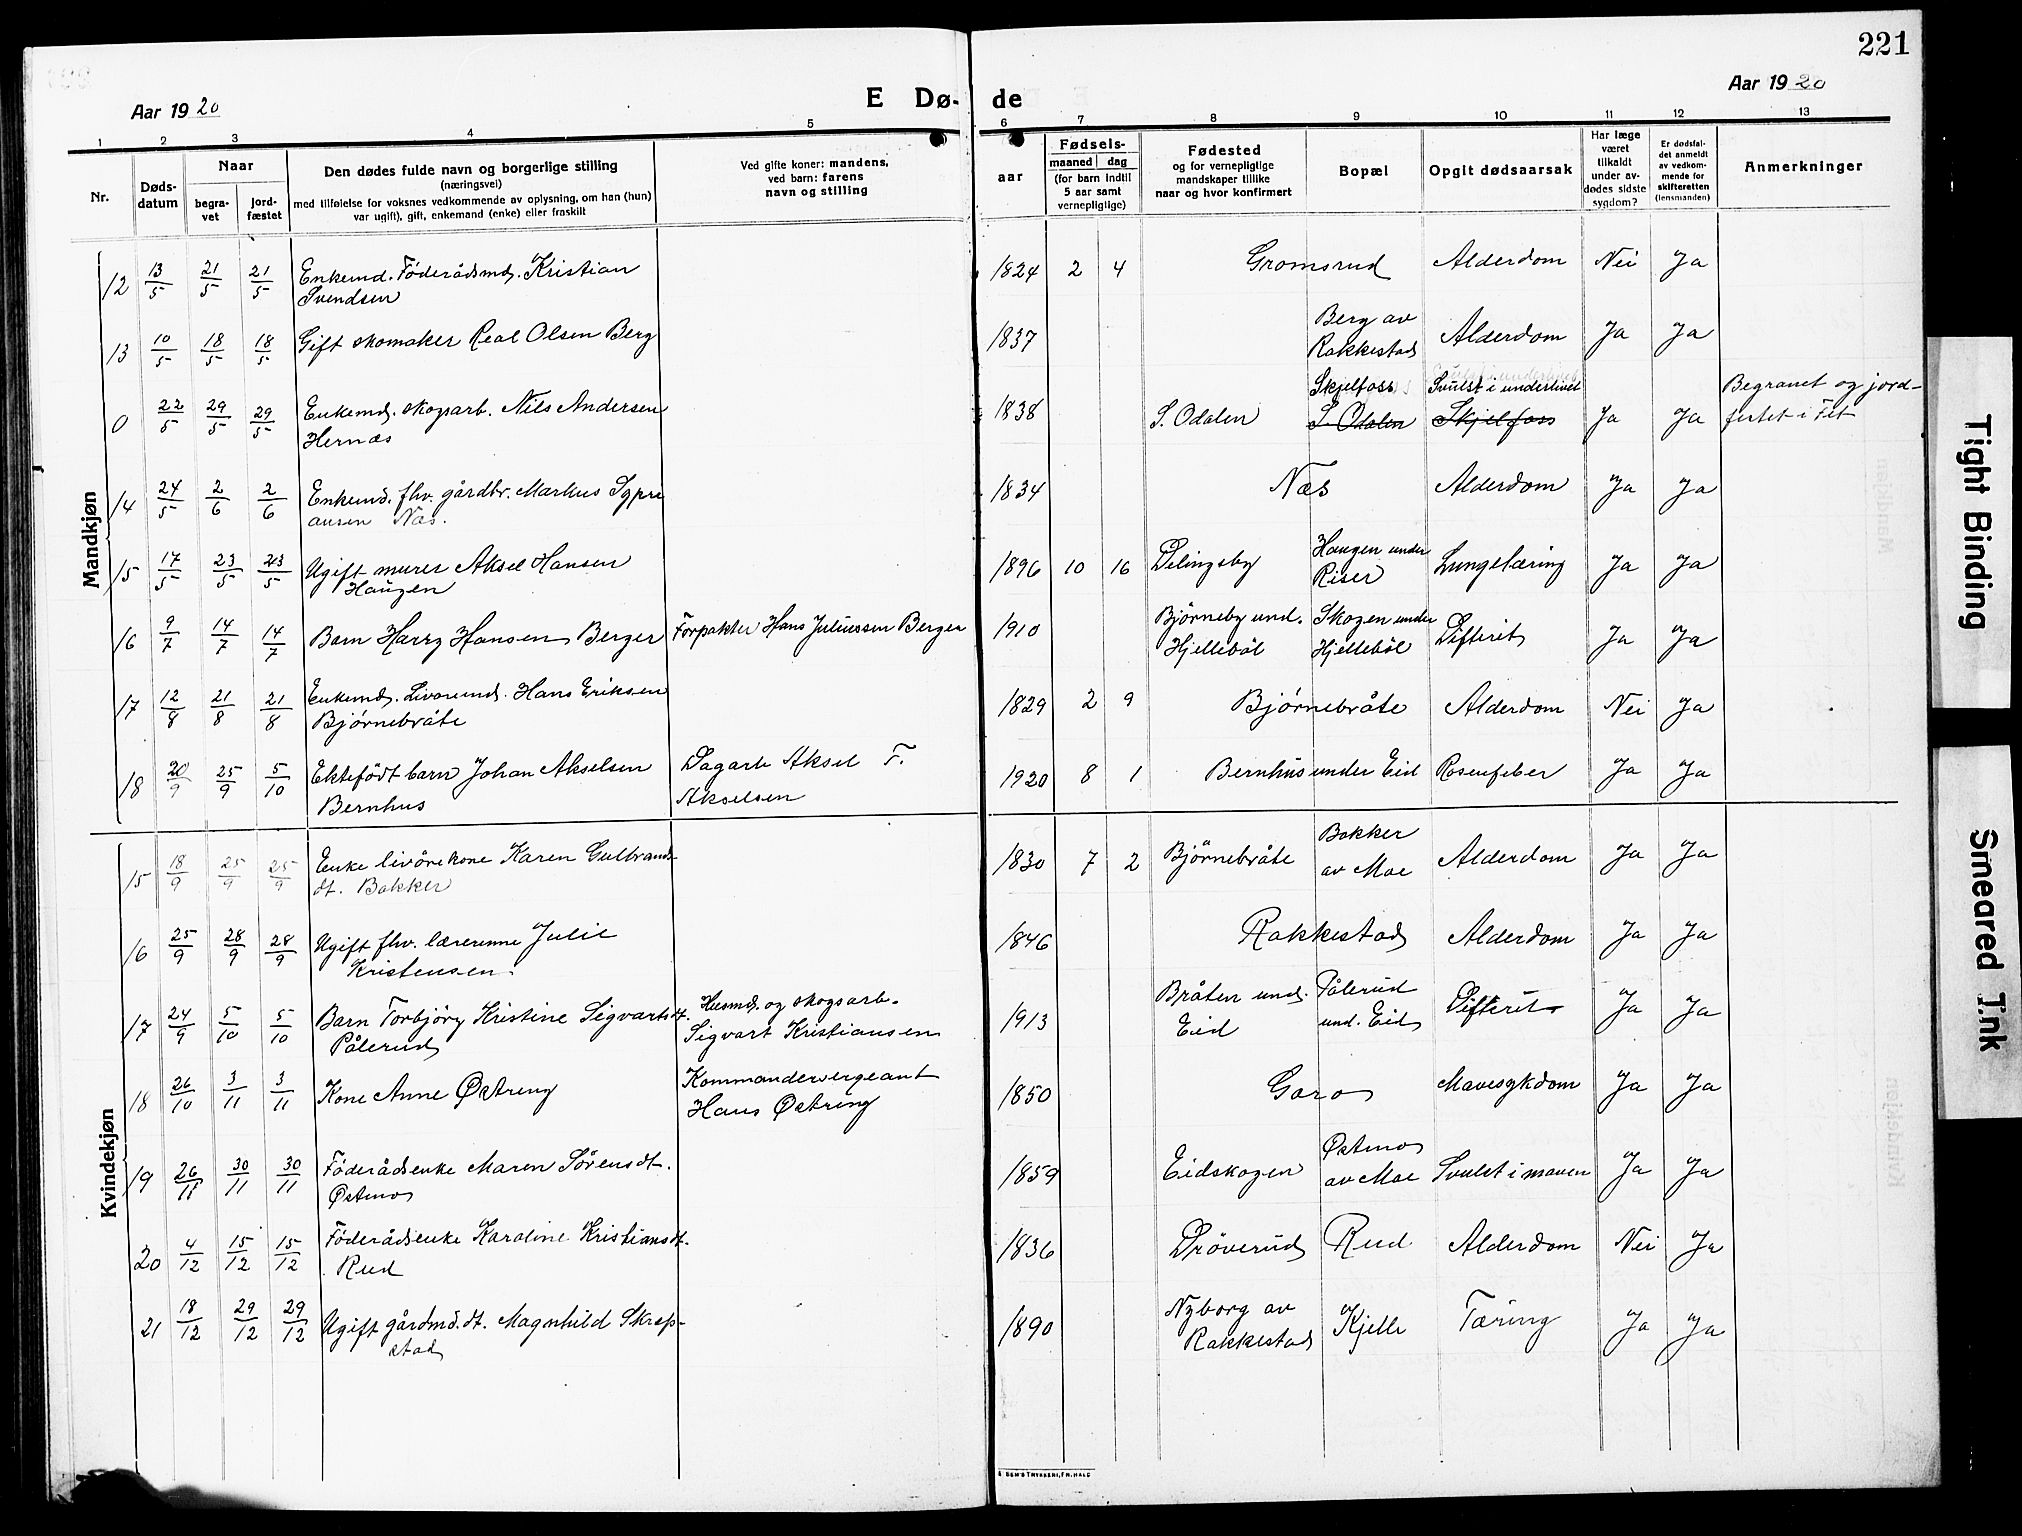 221
Aar 1920
E Dø-
de
Aar 1920
1 2 3 4 5 6 7 8 9 10 11 12 13
Nr.
Døds-
datum
Naar
begra-
vet
jord-
fæstet
Den dødes fulde navn og borgerlige stilling
(næringsvei)
med tilføielse for voksnes vedkommende av oplysning, om han (hun)
var ugift), gift, enkemand (enke) eller fraskilt
Ved gifte koner: mandens,
ved barn: farens
navn og stilling
aar
Fødsels-
maaned dag
(for barn indtil
5 aar samt
vernepligtige)
Fødested
og for vernepligtige
mandskaper tillike
naar og hvor konfirmert
Bopæl
Opgit dødsaarsak
Har læge
været
tilkaldt
under av-
dødes sidste
sygdom?
Er dødsfal-
det anmeldt
av vedkom-
mende for
skifteretten
(lensmanden)
Anmerkninger
Mandkjøn
12 13/5 21/5 21/5 Enkemd. Föderådsmd. Kristian 1824 2 4 Gromsrud Alderdom Nei Ja
Svendsen
13 10/5 18/5 18/5 Gift skomaker Real Olsen Berg 1837 Berg av Alderdom Ja Ja
Rakkestad
0 22/5 29/5 29/5 Enkemd. skogsarb. Nils Andersen 1838 S. Odalen Skjelfoss Svulst i underlivet Ja Ja Begravet og jord-
Hernæs S. Odalen Skjelfoss festet i Fet
14 24/5 2/6 2/6 Enkemd. fhv. gårdbr. Markus Sypri 1834 Næs Alderdom Ja Ja
ansen Næs.
15 17/5 23/5 23/5 Ugift murer Aksel Hansen 1896 10 16 Delingsby Haugen under Lungetæring Ja Ja
Haugen Riser
16 9/7 14/7 14/7 Barn Harry Hansen Berger Forpakter Hans Juliussen Berger 1910 Bjørneby und. Skogen under Difterit Ja Ja
Hjellebøl Hjellebøl
17 12/8 21/8 21/8 Enkemd. Livøremd. Hans Eriksen 1829 2 9 Bjørnebråte Alderdom Nei Ja
Bjørnebråte
18 20/9 25/9 5/10 Ektefödt barn Johan Akselsen Dagarb Aksel F. 1920 8 1 Bernhus under Eid Rosenfeber Ja Ja
Bernhus Akselsen
Kvindekjøn
15 18/9 25/9 25/9 Enke livörekone Karen Gulbrands- 1830 7 2 Björnebråte Bakker Alderdom Ja Ja
dt. Bakker av Moe
16 25/9 28/9 28/9 Ugift fhv. lærerinne Julie 1846 Rakkestad Alderdom Ja Ja
Kristensen.
17 24/9 5/10 5/10 Barn Torbjörg Kristine Sigvartsdt. Husmd. og skogsarb. 1913 Bråten und. Pålerud Difterit Ja Ja
Pålerud Sigvart Kristiansen Eid und. Eid
18 26/10 3/11 3/11 Kone Anne Østreng Kommandersergeant 1850 Garo Mavesykdom Ja Ja
Hans Østreng
19 26/11 30/11 30/11 Föderådsenke Maren Sörensdt. 1859 Eidskogen Østmo Svulst i maven Ja Ja
Østmo av Moe
20 4/12 15/12 15/12 Föderådsenke Karoline Kristiansdt. 1836 Dröverud Rud Alderdom Nei Ja
Rud
21 18/12 29/12 29/12 Ugift gårdmd. dt. Magnhild Skrep- 1890 Nyborg av Kjelle Tæring Ja Ja
stad Rakkestad
Tight Binding
Smeared Ink